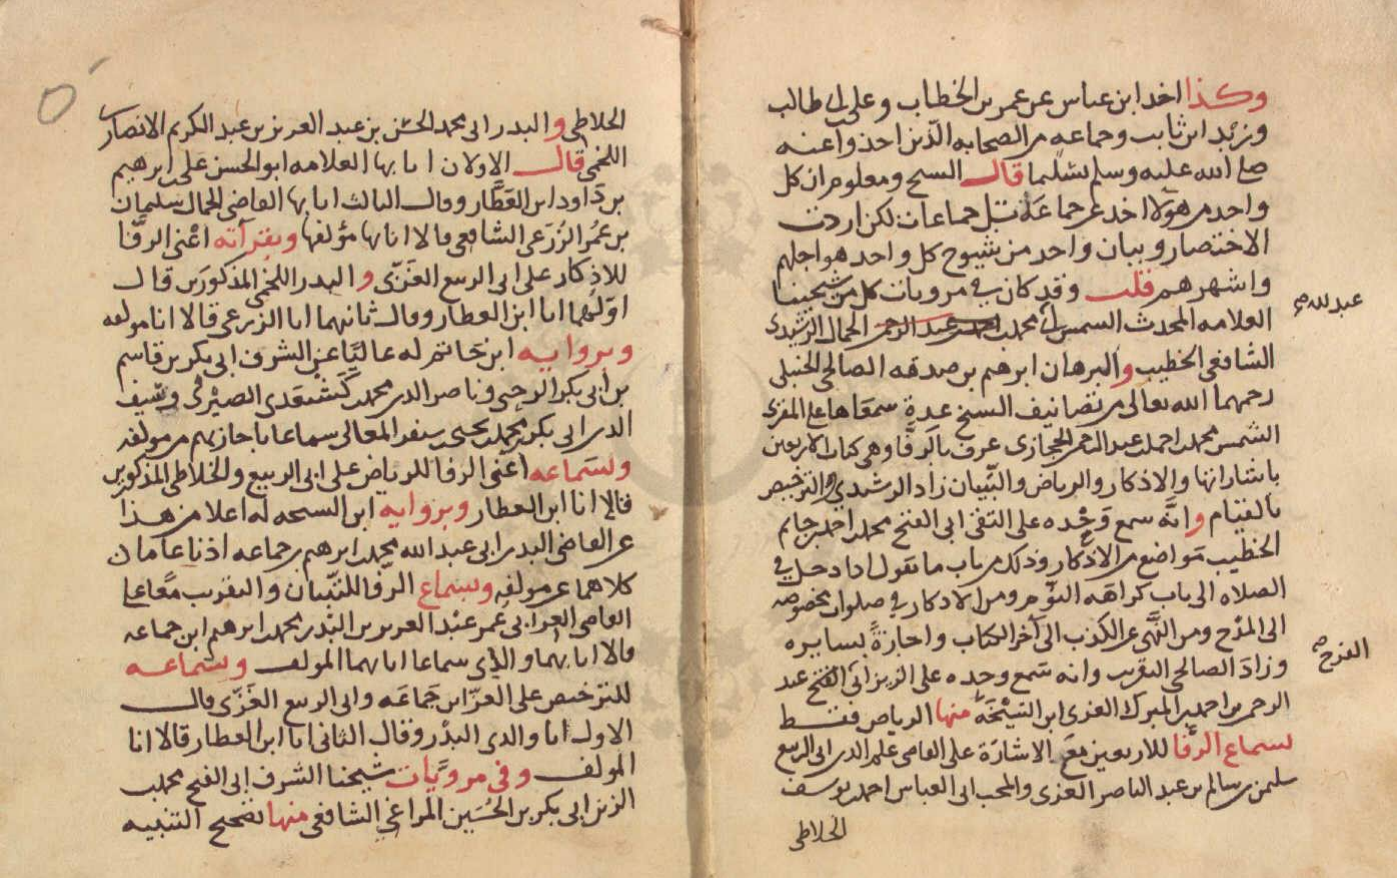 وكذا اخد ابن عباس عن عمر بن الخطاب وعلى بن ابى طالب
وزيد ابن ثابت وجماعه من الصحابه الذين اخذوا عنه
صلى الله عليه وسلم تسليما قال الشيخ ومعلوم ان كل
واحد من هولا اخد عن جماعة بل جماعات لكن اردت
الاختصار وبيان واحد من شيوخ كل واحد هو اجلهم
واشهرهم قلت وقد كان في مرويات كل من شيخينا
العلامه المحدث الشمس ابى محمد بن احمد بن عبد الرحمن الجمال الرشيدى
عبد الله صح
الشافعى الخطيب والبرهان ابرهيم بن صدقه الصالحى الحنبلى
رحمهما الله تعالى من تصانيف الشيخ عدة سمعاها على المقرى
الشمس محمد بن احمد بن عبد الرحمن الحجازى عرف بالرفا وهى كتاب الاربعين
باشاراتها والاذكار والرياض والتبيان زاد الرشيدى والترخيص
بالقيام وانه سمع وحده على التقى ابى الفتح محمد بن احمد بن حاتم
الخطيب مواضع من الاذكار وذلك من باب ما يقول اذا دخل في
الصلاه الى باب كراهه النوم ومن الاذكار في صلوات مخصوصه
الى المدح ومن النهى عن الكذب الى آخر الكتاب واجازة لسايره
وزاد الصالحى التقريب وانه سمع وحده على الزين ابى الفتح عبد
الفرج صح
الرحمن بن احمد بن المبرك الغزى ابن الشيخة منها الرياض فقط
بسماع الرفا للاربعين مع الاشارة على القاضى علم الدين ابى الربيع
سليمن بن سالم بن عبد الناصر الغزى والمحب ابى العباس احمد بن يوسف
الخلاطى
الخلاطى والبدر ابى محمد الحسن بن عبد العزيز بن عبد الكريم الانصارى
اللخمى قال الاولان انا بها العلامه ابو الحسن على بن ابرهيم
بن داود ابن العطار وقال الثالث انا بها القاضى الجمال سليمان
بن عمر الزرعى الشافعى قالا انا بها مؤلفها وبقرآته اعنى الرفا
للاذكار على ابى الربيع الغزى والبدر اللخمى المذكورين قال
اولهما انا ابن العطار وقال ثانيهما انا الزرعى قالا انا مولفه
وبروايه ابن حاتم له عاليا عن الشرف ابى بكر بن قاسم
بن ابى بكر الرحبى وناصر الدين محمد بن كشتغدى الصيرفى وسيف
الدين ابى بكر بن محمد بن يحيى بن سنقر المعالى سماعا باجازتهم من مولفه
وبسماعه اعنى الرفا للرياض على ابى الربيع والخلاطى المذكورين
قالا انا ابن العطار وبروايه ابن الشيخه له اعلا من هذا
عن القاضى البدر ابى عبد الله محمد بن ابرهيم بن جماعه اذنا عاما ان
كلاهما عن مولفه وبسماع الرفا للتبيان والتقريب معا على
القاضى العز ابى عمر عبد العزيز بن البدر محمد بن ابرهيم ابن جماعه
قالا انا بهما والدى سماعا انا بهما المولف وبسماعه
للترخيص على العز ابن جماعه وابى الربيع الغزى قال
الاول انا والدى البدر وقال الثانى انا ابن العطار قالا انا
المولف وفى مرويات شيخنا الشرف ابى الفتح محمد بن
الزين ابى بكر بن الحسين المراغى الشافعى منها تصحيح التنبيه